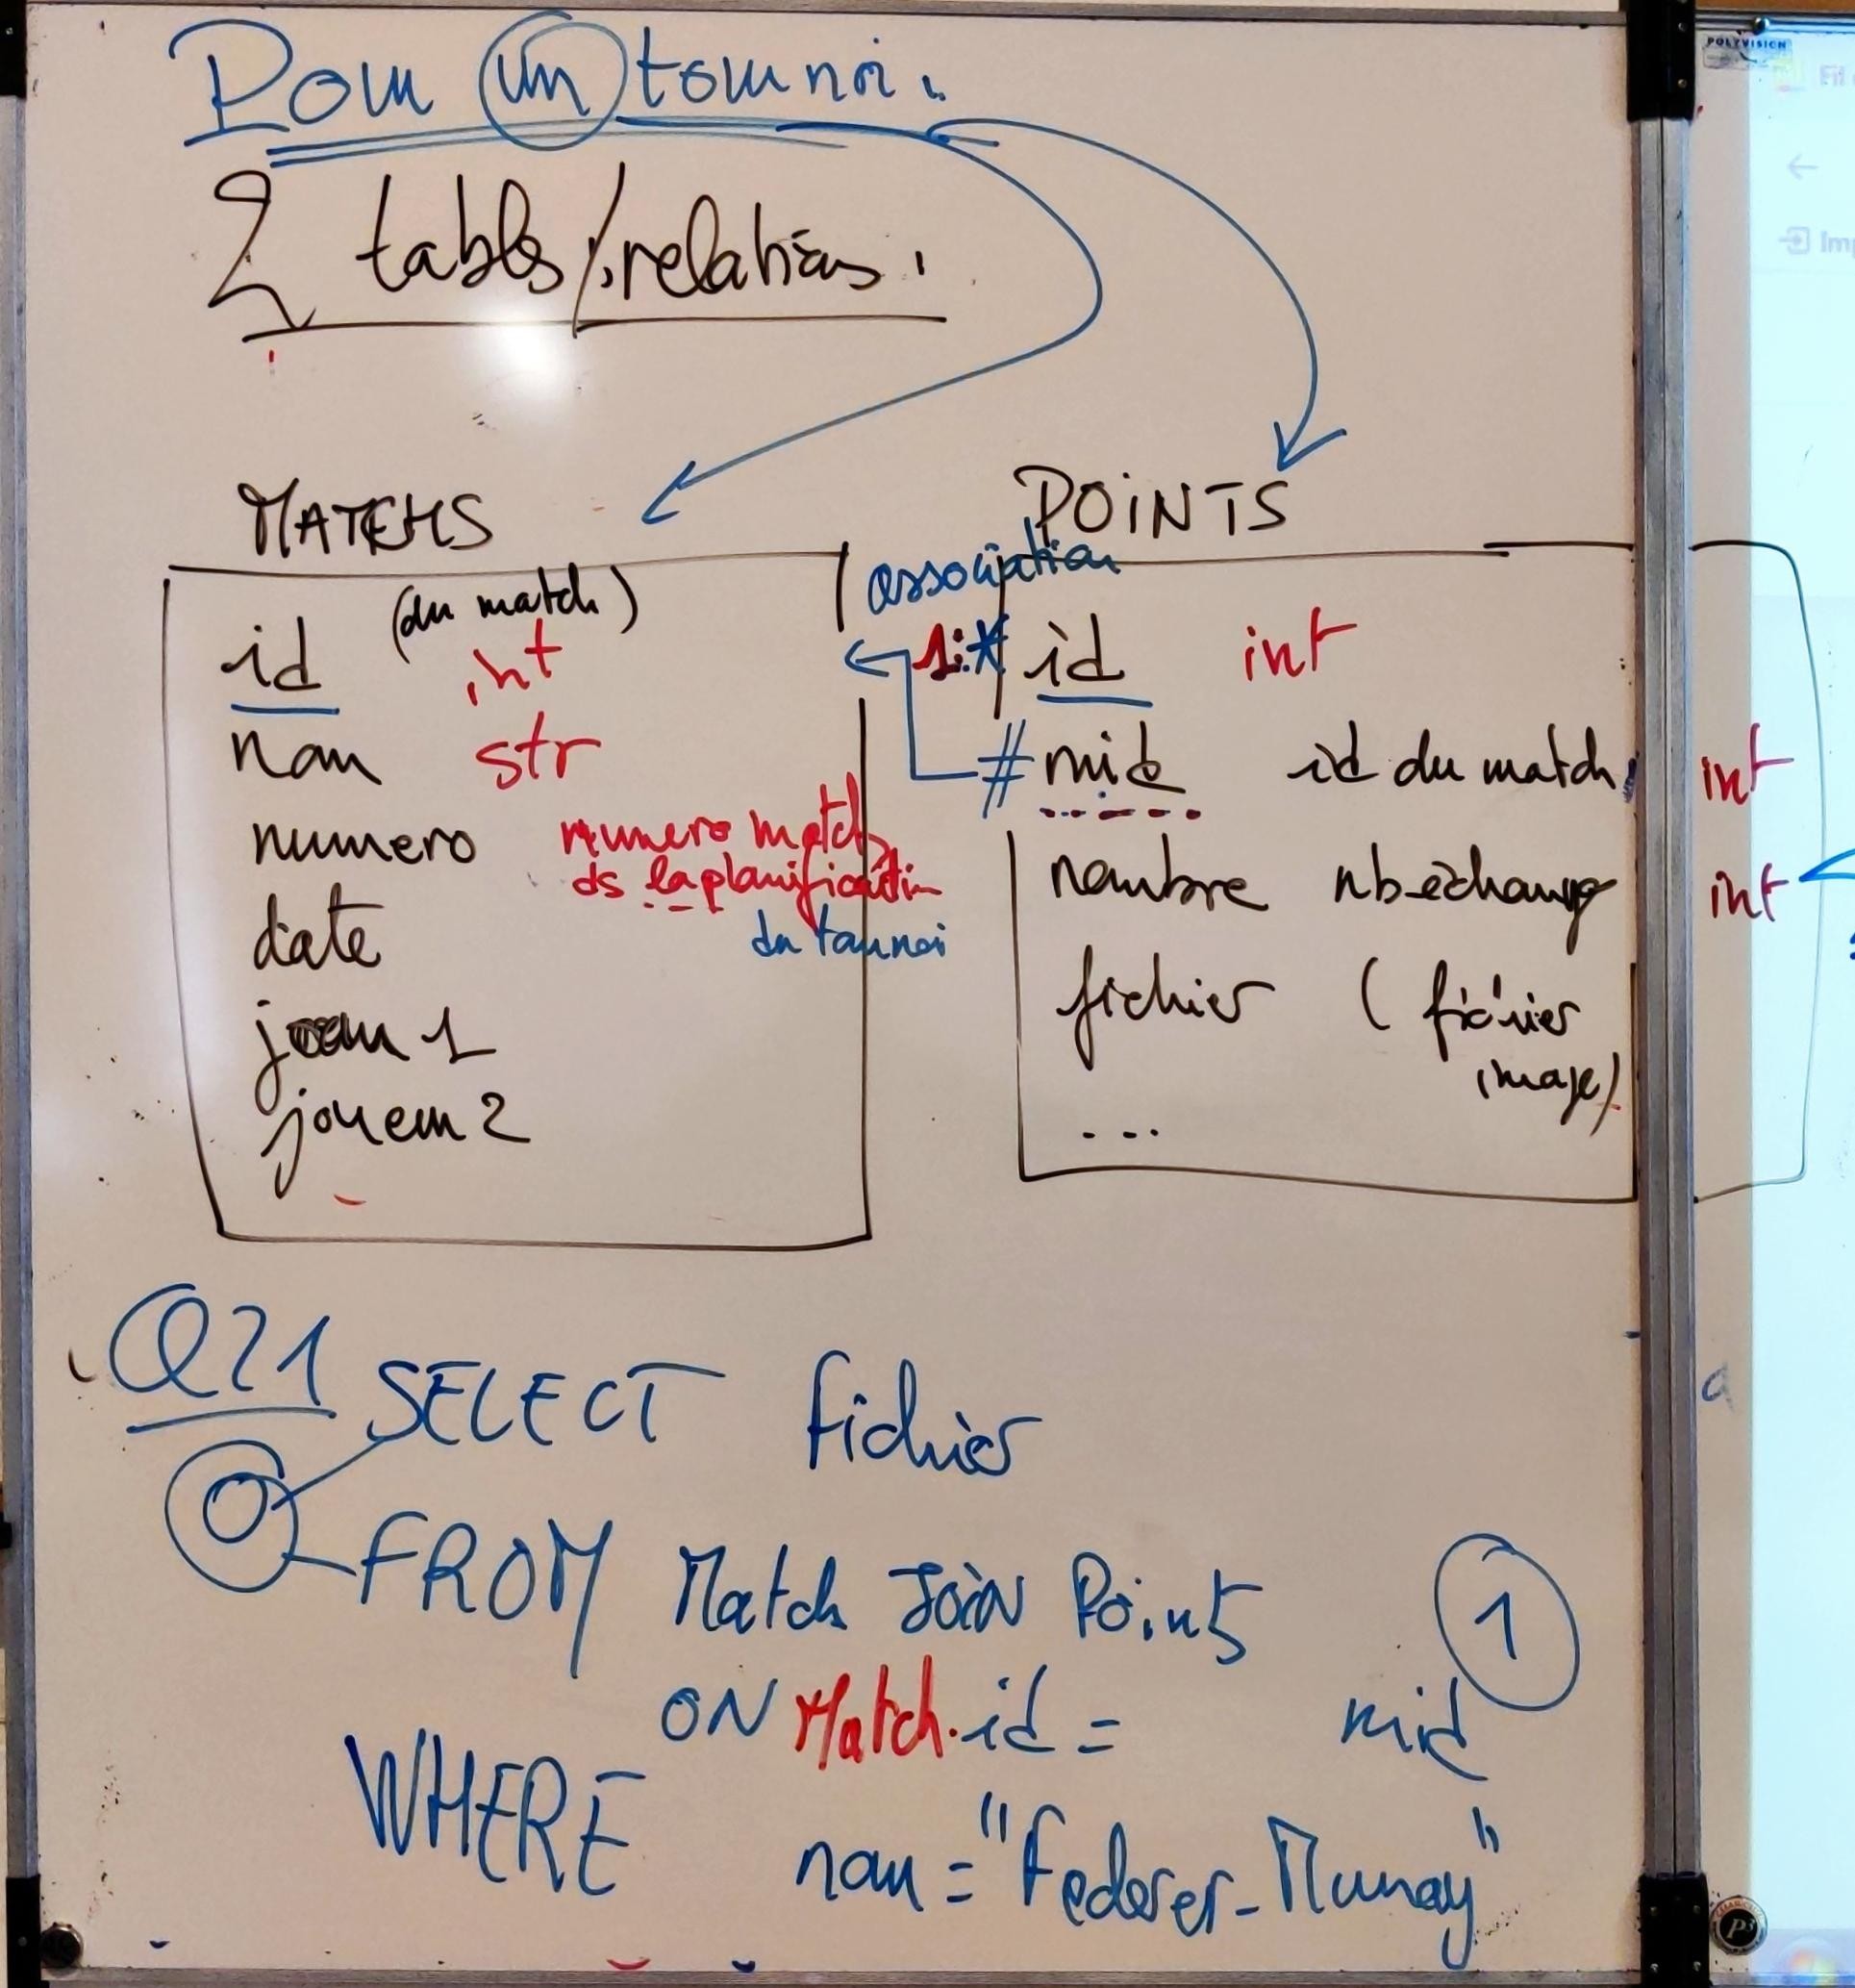 Pour un tournoi :
2 tables / relations :
MATCHS
id (du match) int
nom str
numero numero match
ds la planification
du tournoi
date
joueur 1
joueur 2
association
1:*
POINTS
id int
# mid id du match int
nombre nb echange int
fichier ( fichier
image)
...
Q21
SELECT fichier
FROM Match JOIN Points
ON Match.id = mid
WHERE nom = "Federer-Murray"
1
POLYVISION